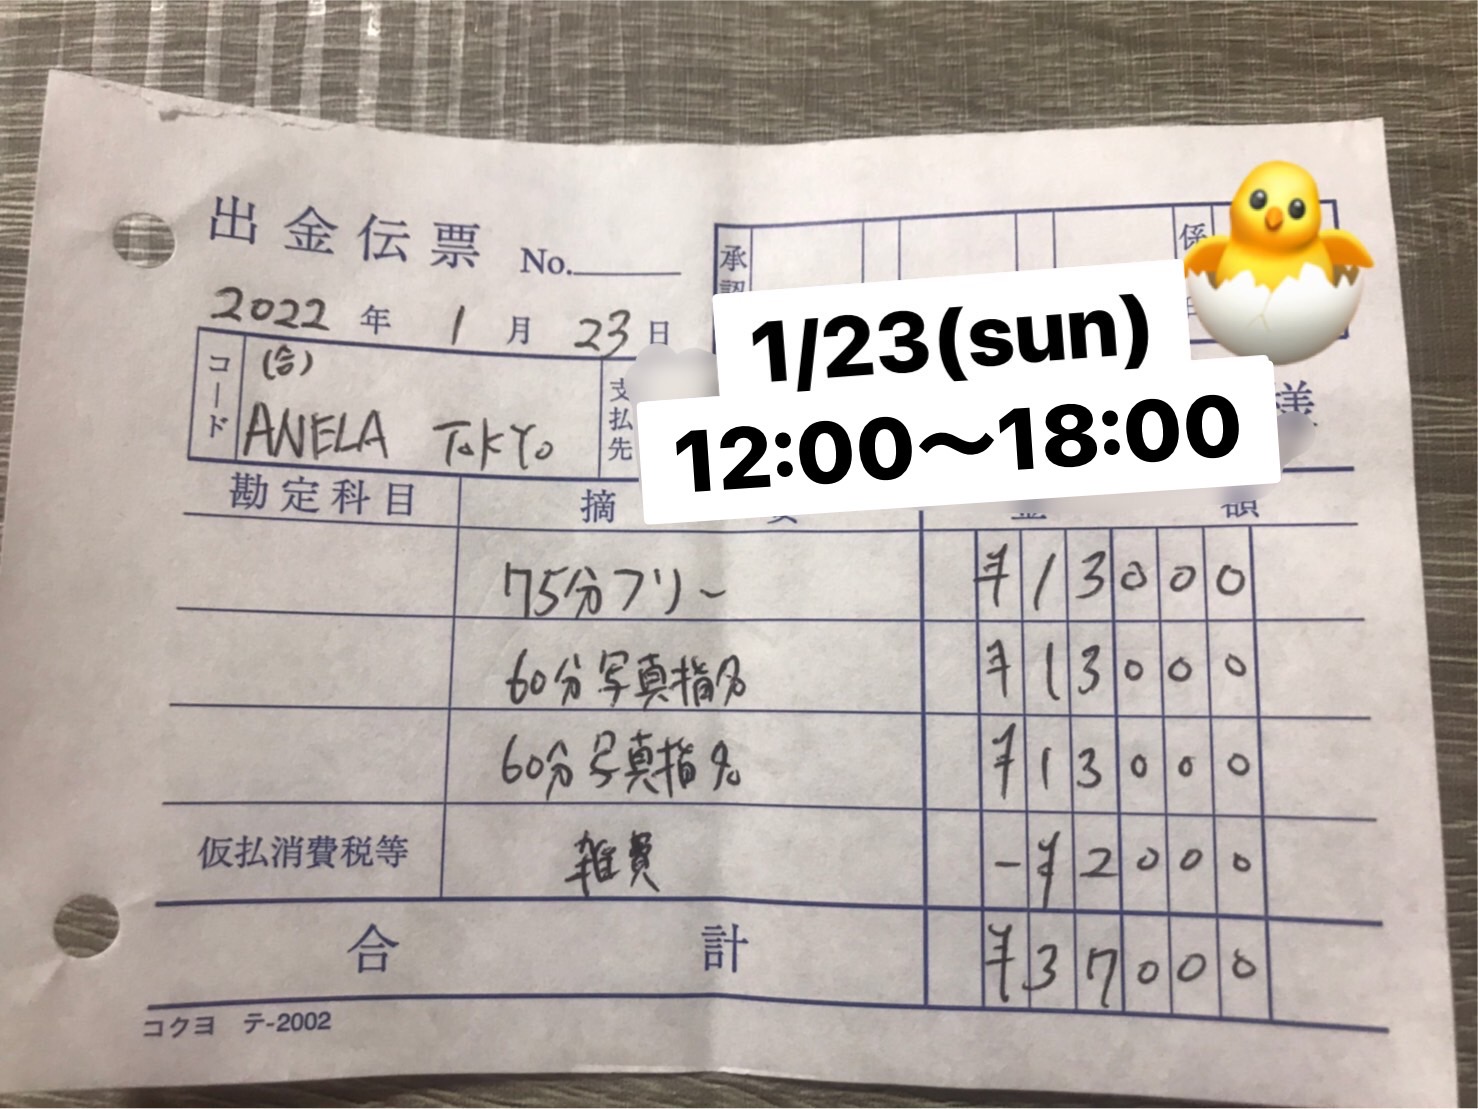 出金伝票 No.
承認
係
2022年 1月 23日
1/23(sun)
12:00〜18:00
コード
(合)
ANELA TOKYO
支払先
様
勘定科目 摘 要 金 額
75分フリー ¥13000
60分写真指名 ¥13000
60分写真指名 ¥13000
仮払消費税等 雑費 -¥2000
合計 ¥37000
コクヨ テ-2002